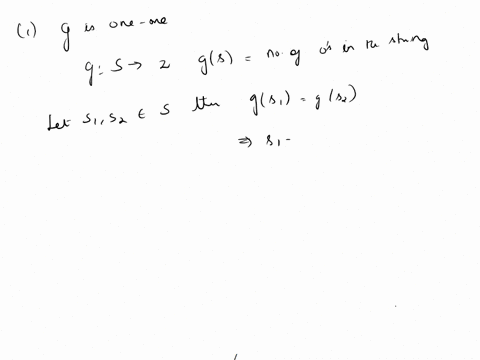 (1) g is one-one
g: S → Z g(s) = no. of 0's in the string
Let s1, s2 ∈ S then g(s1) = g(s2)
⇒ s1 -